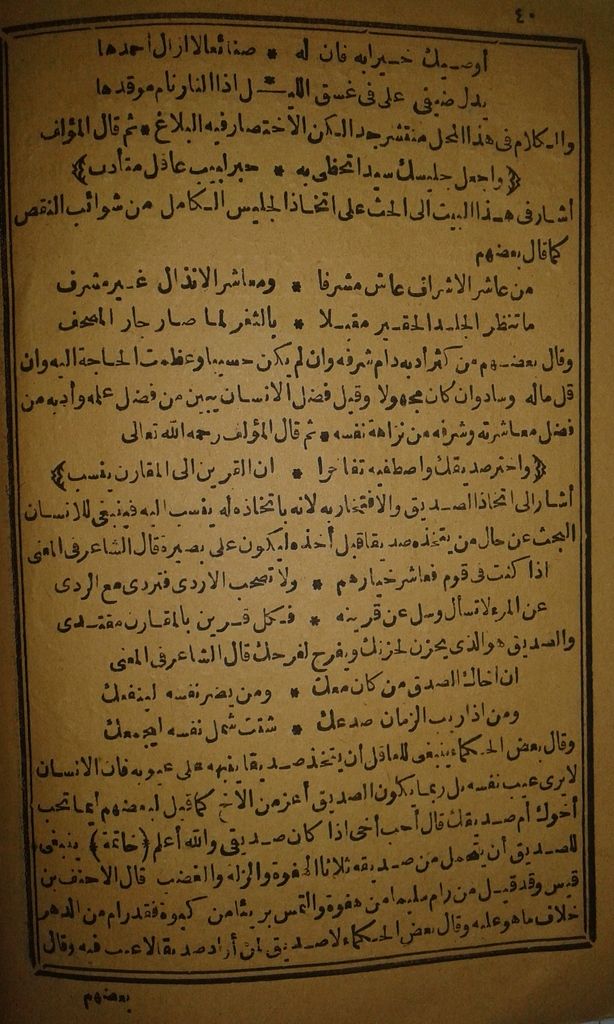 ٤٠
أوصيك خيرا به فان له * صنائعا لا ازال أحمدها
يدل ضيفي على في غسق الليـ * ـل اذا النار نام موقدها
والكلام في هذا المحل منتشر جدا لكن الاختصار فيه البلاغ * ثم قال المؤلف
﴿واجعل جليسك سيدا تحظى به * حبر لبيب عاقل متأدب﴾
أشار في هذا البيت الى الحث على اتخاذ الجليس الكامل من شوائب النقص
كما قال بعضهم
من عاشر الاشراف عاش مشرفا * ومعاشر الانذال غير مشرف
ما تنظر الجلد الحقير مقبلا * بالثغر لما صار جار المصحف
وقال بعضهم من كثر أدبه دام شرفه وان لم يكن حسيبا وعظمت الحاجة اليه وان
قل ماله وساد وان كان مجهولا وقيل فضل الانسان يبين من فضل عمله وأدبه من
فضل معاشرته وشرفه من نزاهة نفسه * ثم قال المؤلف رحمه الله تعالى
﴿واختر صديقك واصطفيه تفاخرا * ان القرين الى المقارن ينسب﴾
أشار الى اتخاذ الصديق والافتخار به لانه باتخاذه له ينسب اليه فينبغى للانسان
البحث عن حال من يتخذه صديقا قبل أخذه ليكون على بصيرة قال الشاعر في المعنى
اذا كنت في قوم فعاشر خيارهم * ولا تصحب الاردى فتردى مع الردى
عن المرء لا تسأل وسل عن قرينه * فكل قرين بالمقارن مقتدى
والصديق هو الذي يحزن لحزنك ويفرح لفرحك قال الشاعر في المعنى
ان أخاك الصدق من كان معك * ومن يضر نفسه لينفعك
ومن اذا ريب الزمان صدعك * شتت شمل نفسه ليجمعك
وقال بعض الحكماء ينبغى للعاقل أن يتخذ صديقا ينبهه على عيوبه فان الانسان
لا يرى عيب نفسه بل ربما يكون الصديق أعز من الأخ كما قيل لبعضهم أيما تحب
أخوك أم صديقك قال أحب أخى اذا كان صديقى والله أعلم ﴿خاتمة﴾ ينبغى
للصديق أن يتحمل من صديقه ثلاثا الهفوة والزلة والغضب قال الاحنف بن
قيس وقد قيل من رام سليما من هفوة والتمس بريئا من كبوة فقد رام من الدهر
خلاف ما هو عليه وقال بعض الحكماء لا صديق لمن أراد صديقا لا عيب فيه وقال
بعضهم